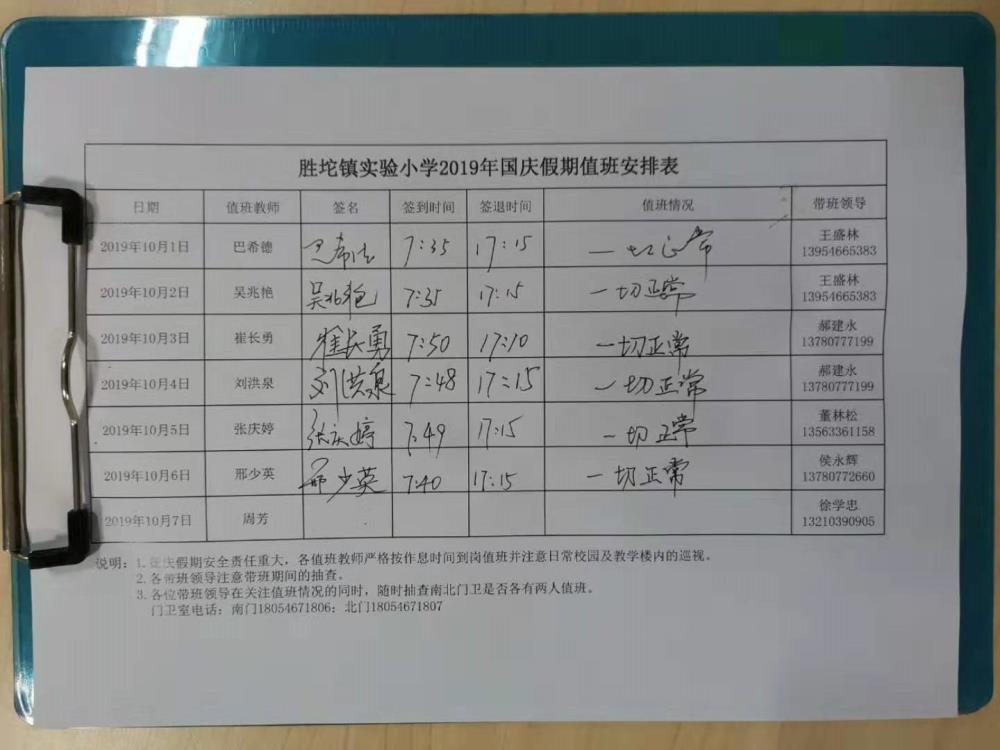 胜坨镇实验小学2019年国庆假期值班安排表
日期 值班教师 签名 签到时间 签退时间 值班情况 带班领导
2019年10月1日 巴希德 巴希德 7:35 17:15 一切正常 王盛林 13954665383
2019年10月2日 吴兆艳 吴兆艳 7:35 17:15 一切正常 王盛林 13954665383
2019年10月3日 崔长勇 崔长勇 7:50 17:10 一切正常 郝建永 13780777199
2019年10月4日 刘洪泉 刘洪泉 7:48 17:15 一切正常 郝建永 13780777199
2019年10月5日 张庆婷 张庆婷 7:49 17:15 一切正常 董林松 13563361158
2019年10月6日 邢少英 邢少英 7:40 17:15 一切正常 侯永辉 13780772660
2019年10月7日 周芳 徐学忠 13210390905
说明：1.国庆假期安全责任重大，各值班教师严格按作息时间到岗值班并注意日常校园及教学楼内的巡视。
2.各带班领导注意带班期间的抽查。
3.各位带班领导在关注值班情况的同时，随时抽查南北门卫是否各有两人值班。
门卫室电话：南门18054671806；北门18054671807